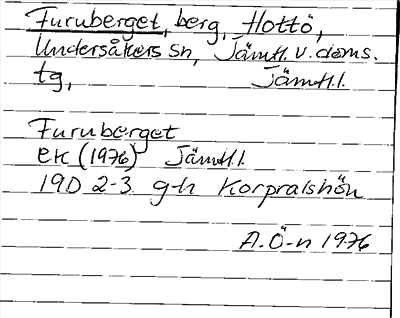 Furuberget, berg, Hottö,
Undersåkers sn, Jämtl. v. doms.
tg, Jämtl.l.
Furuberget
ek (1976) Jämtl.l.
19D 2-3 g-h Korpralshön
A.Ö-n 1976